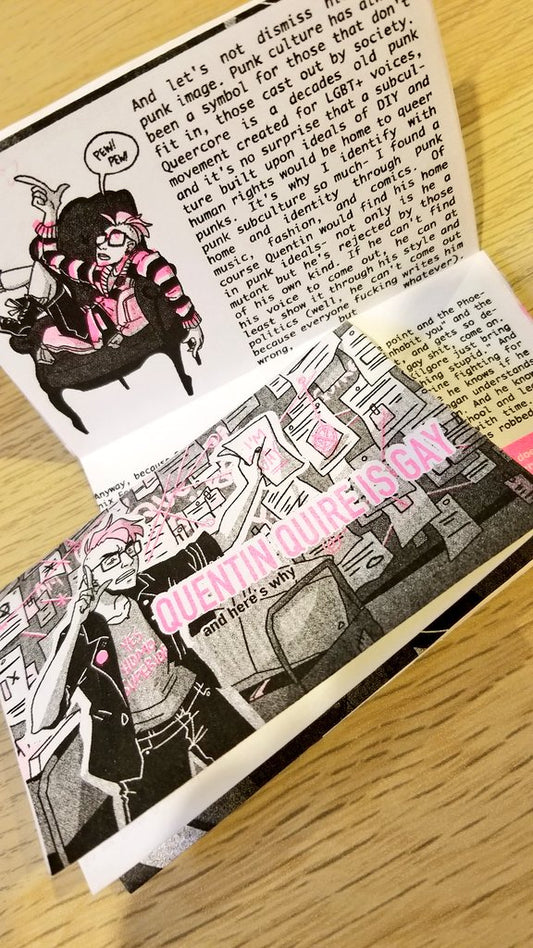 And let's not dismiss
punk image. Punk culture has
been a symbol for those that don't
fit in, those cast out by society.
Queercore is a decades old punk
movement created for LGBT+ voices,
and it's no surprise that a subcul-
ture built upon ideals of DIY and
human rights would be home to queer
punks. It's why I identify with
punk subculture so much- I found a
home and identity through punk
music, fashion, and comics. Of
course Quentin would find his home
in punk ideals- not only is he a
mutant but he's rejected by those
of his own kind. If he can't find
his voice to come out, he can at
least show it through his style and
politics (well, he can't come out
because everyone fucking writes him
wrong, but whatever).
PEW!
PEW!
Anyway, because
point and the Phoe-
you" and the
and gets so de-
gay shit: come on.
Kilgore just bring
hing stupid." And
ine fighting for
he knows if he
gan understands
And he know
hool and le
with time
s robbed
I'M
QUENTIN QUIRE IS GAY
and here's why
YES
HOMO
SUPERIOR